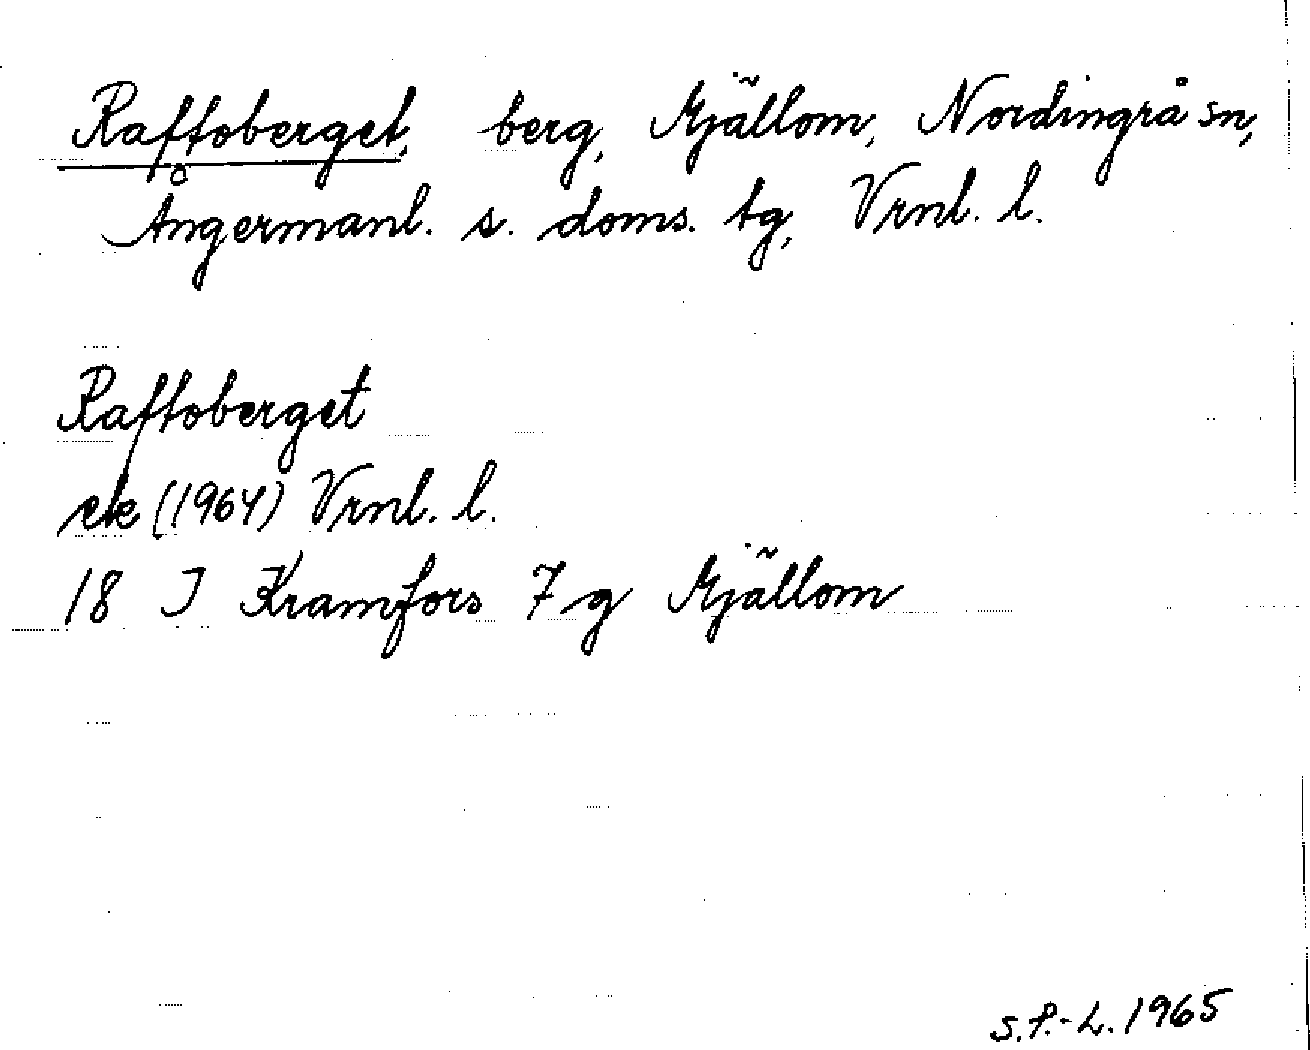 Raftoberget, berg, Mjällom, Nordingrå sn,
Ångermanl. s. doms. tg, Vrnl. l.
Raftoberget
ek (1964) Vrnl. l.
18 J Kramfors 7 g Mjällom
S.P.-L. 1965